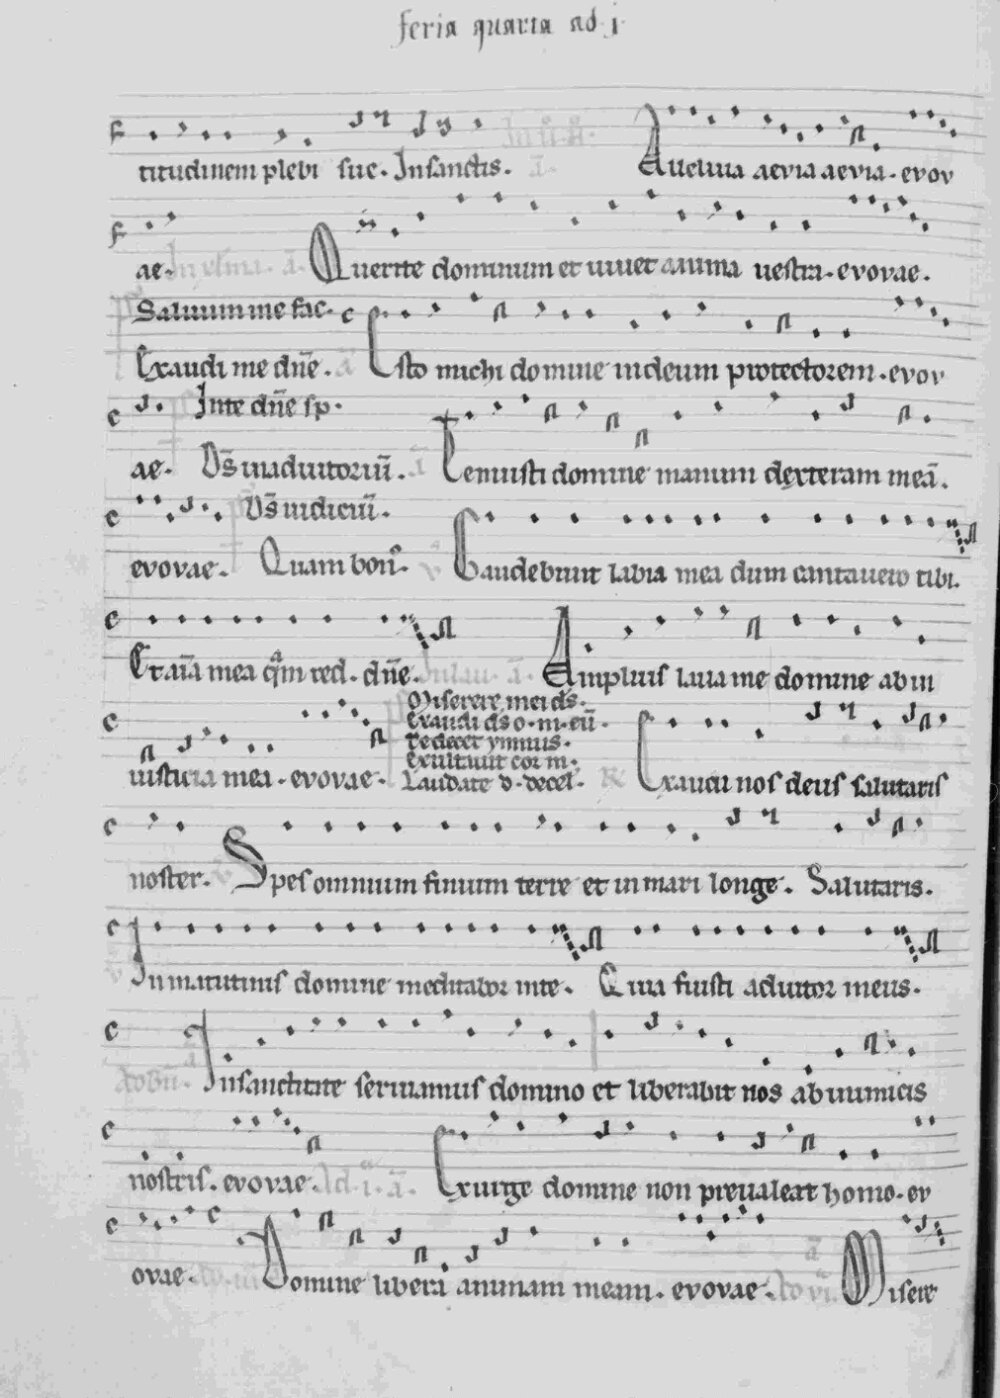 feria quarta ad j.
titudinem plebi sue. In sanctis. Alleluia aevia aevia. evov
ae. Querite dominum et vivet anima vestra. evovae.
Salvum me fac.
Exaudi me dñe. Esto michi domine in deum protectorem. evov
In te dñe sp.
ae. Ds̄ in adiutoriū. Tenuisti domine manum dexteram meā.
Ds̄ iudiciū.
evovae. Quam bon᷒. Gaudebunt labia mea dum cantavero tibi.
Et aīa mea qm̄ red. dñe. Amplius lava me domine ab in
Miserere mei ds.
Exaudi ds o. m. eū.
Te decet ymnus.
Exultavit cor m.
iusticia mea. evovae. Laudate d. de cel. Exaudi nos deus salutaris
noster. Spes omnium finium terre et in mari longe. Salutaris.
In matutinis domine meditabor in te. Quia fuisti adiutor meus.
In sanctitate serviamus domino et liberabit nos ab inimicis
nostris. evovae. Ad .i. ā. Exurge domine non prevaleat homo. ev
ovae. Domine libera animam meam. evovae. Misere